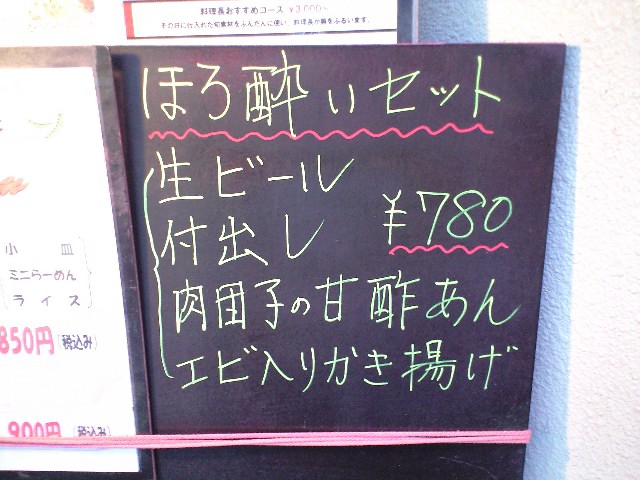 料理長おすすめコース ¥3,000〜
その日に仕入れた旬食材をふんだんに使い、料理長が腕をふるいます。
ほろ酔いセット
生ビール
付出し
¥780
肉団子の甘酢あん
エビ入りかき揚げ
小皿
ミニらーめん
ライス
850円(税込み)
900円(税込み)